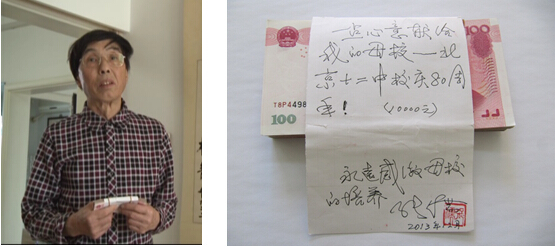 点心意献给
我的母校—北
京十二中校庆80周
年！（10000元）
永远感激母校
的培养
2013年
T8P4498
100
100